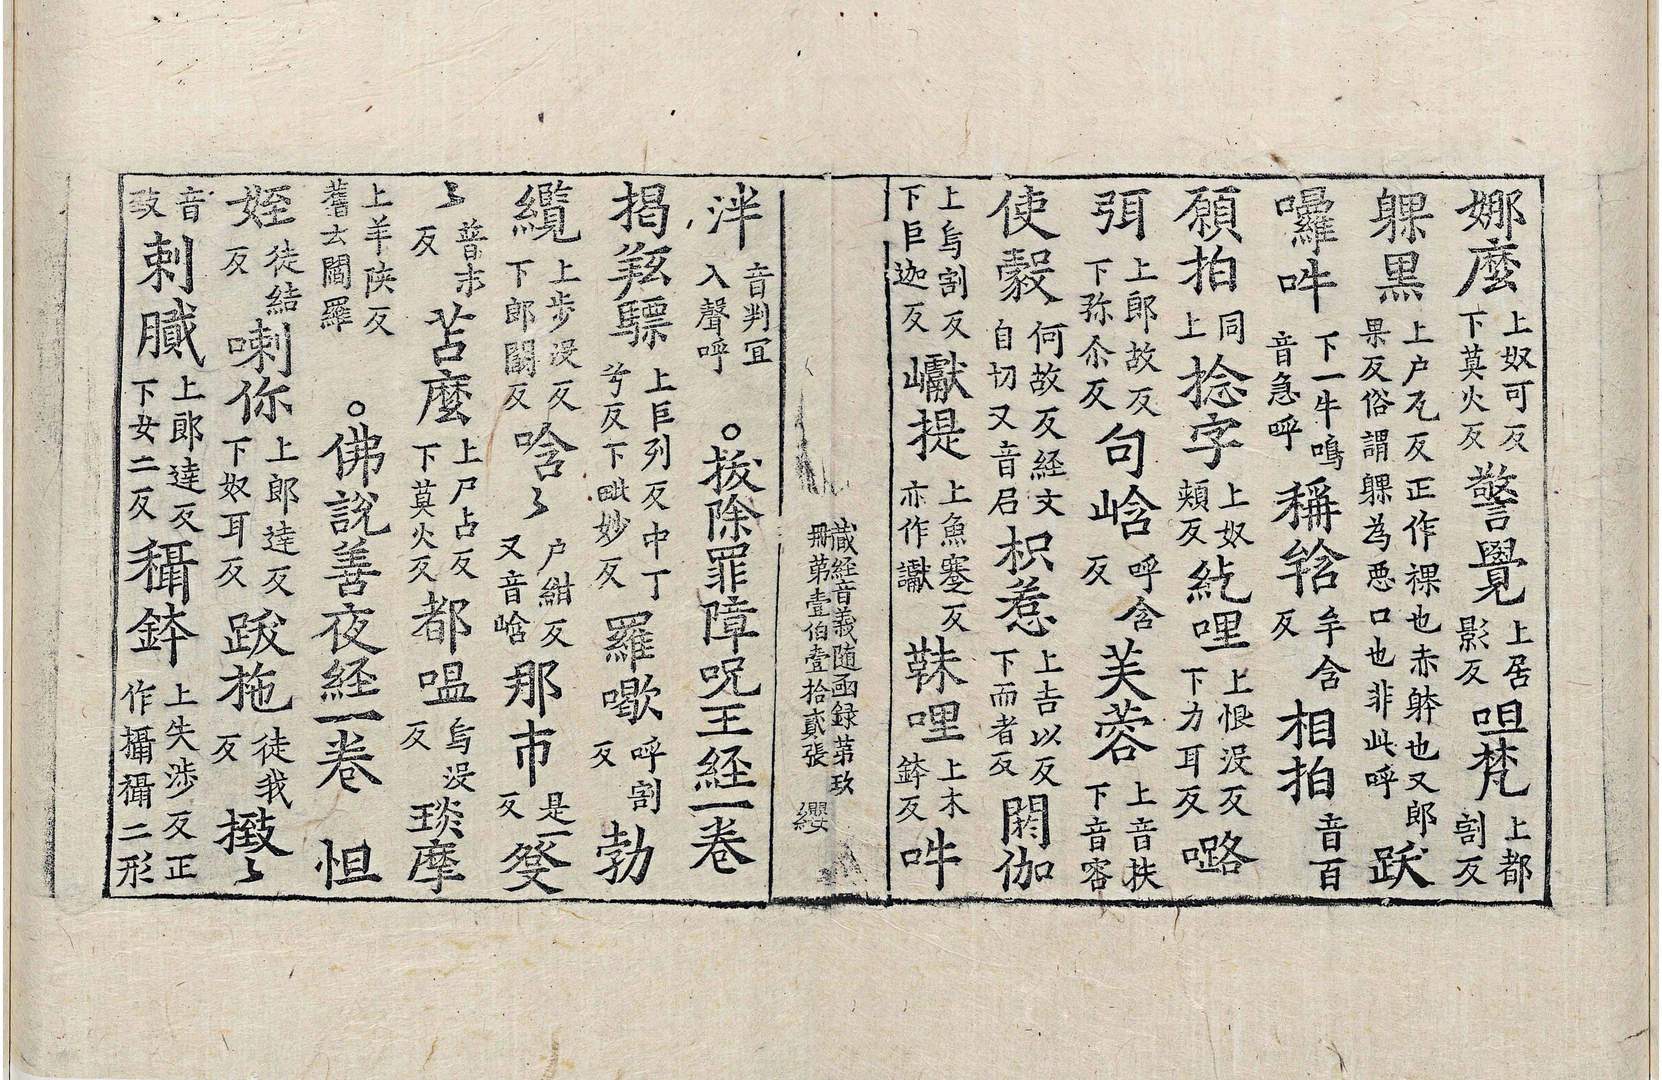 娜麼上奴可反下莫火反警覺上居影反呾梵上都割反
躶黑上户瓦反正作裸也赤躰也又郎果反俗謂躶為惡口也非此呼跃
囉吽下一牛鳴音急呼稱㖤牟含反相拍音百
願拍同上捻字上奴頰反紇哩上恨没反下力耳反㗉
弭上郎故反下弥尒反句㟏呼含反芙蓉上音扶下音容
使㲉何故反経文自切又音启枳惹上吉以反下而者反閼伽
上烏割反下巨迦反巘提上魚蹇反亦作讞靺哩上木鉢反吽
藏経音義随函録第玖冊第壹伯壹拾貳張 纓
泮音判冝入聲呼 。拔除罪障呪王経一卷
揭㝹驃上巨列反中丁兮反下毗妙反羅㘉呼割反勃
纜上步没反下郎闞反唅〻户紺反又音㟏那市是一反癹
〻普末反苫麼上尸占反下莫火反都嗢烏没反琰摩
上羊陕反舊云閻羅 。佛說善夜経一卷 怛
姪徒結反喇你上郎達反下奴耳反跋拖徒我反㨖〻
音致剌膩上郎達反下女二反欇鉢上失涉反正作攝欇二形